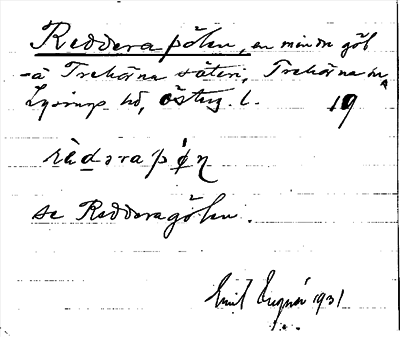 Reddera pölen, en mindre göl
å Trehörna säteri, Trehörna sn
Lysings hd, Österg. l. 19
rèdərapøn
se Redderagölen.
Emil 1931